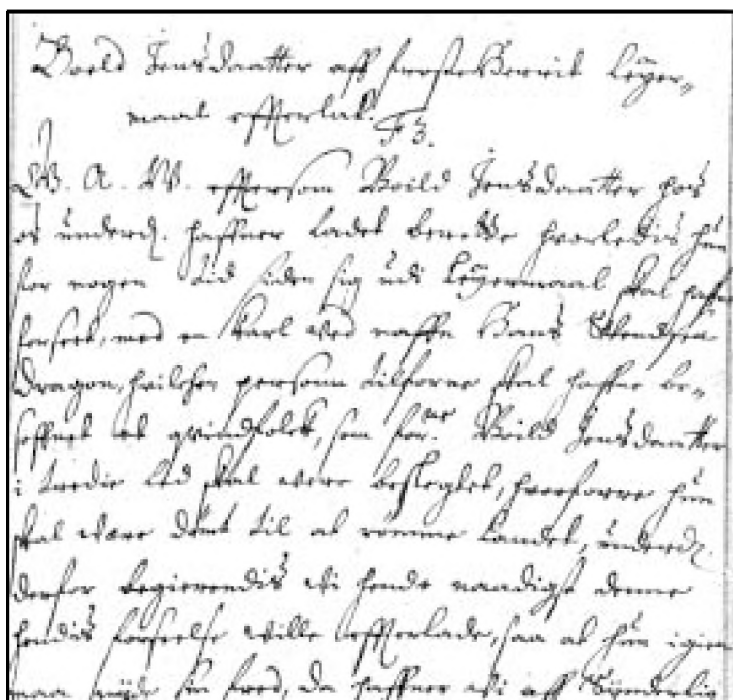 Boeld Jensdaatter aff første Herrit Leyer-
maal efterlat. F3.
W. A. W. eftersom Boild Jensdaatter hos
os underd. haffuer ladet berette hvorledis hun
for nogen tid siden sig udi Leyermaal skal haffue
forseet, med en karl ved naffn Hans
Dragon, huilchen person tilforne skal haffue be-
soffuet et quindfolck, som for.ne Boild Jensdaatter
i tredie led skal were beslegtet, huorfore hun
skal være dømt til at rømme landet, underd.
derfor begierendis wi hende naadigst denne
hendis forseelse wille efterlade, saa at hun igien
maa nyde sin fred, da haffuer wi aff